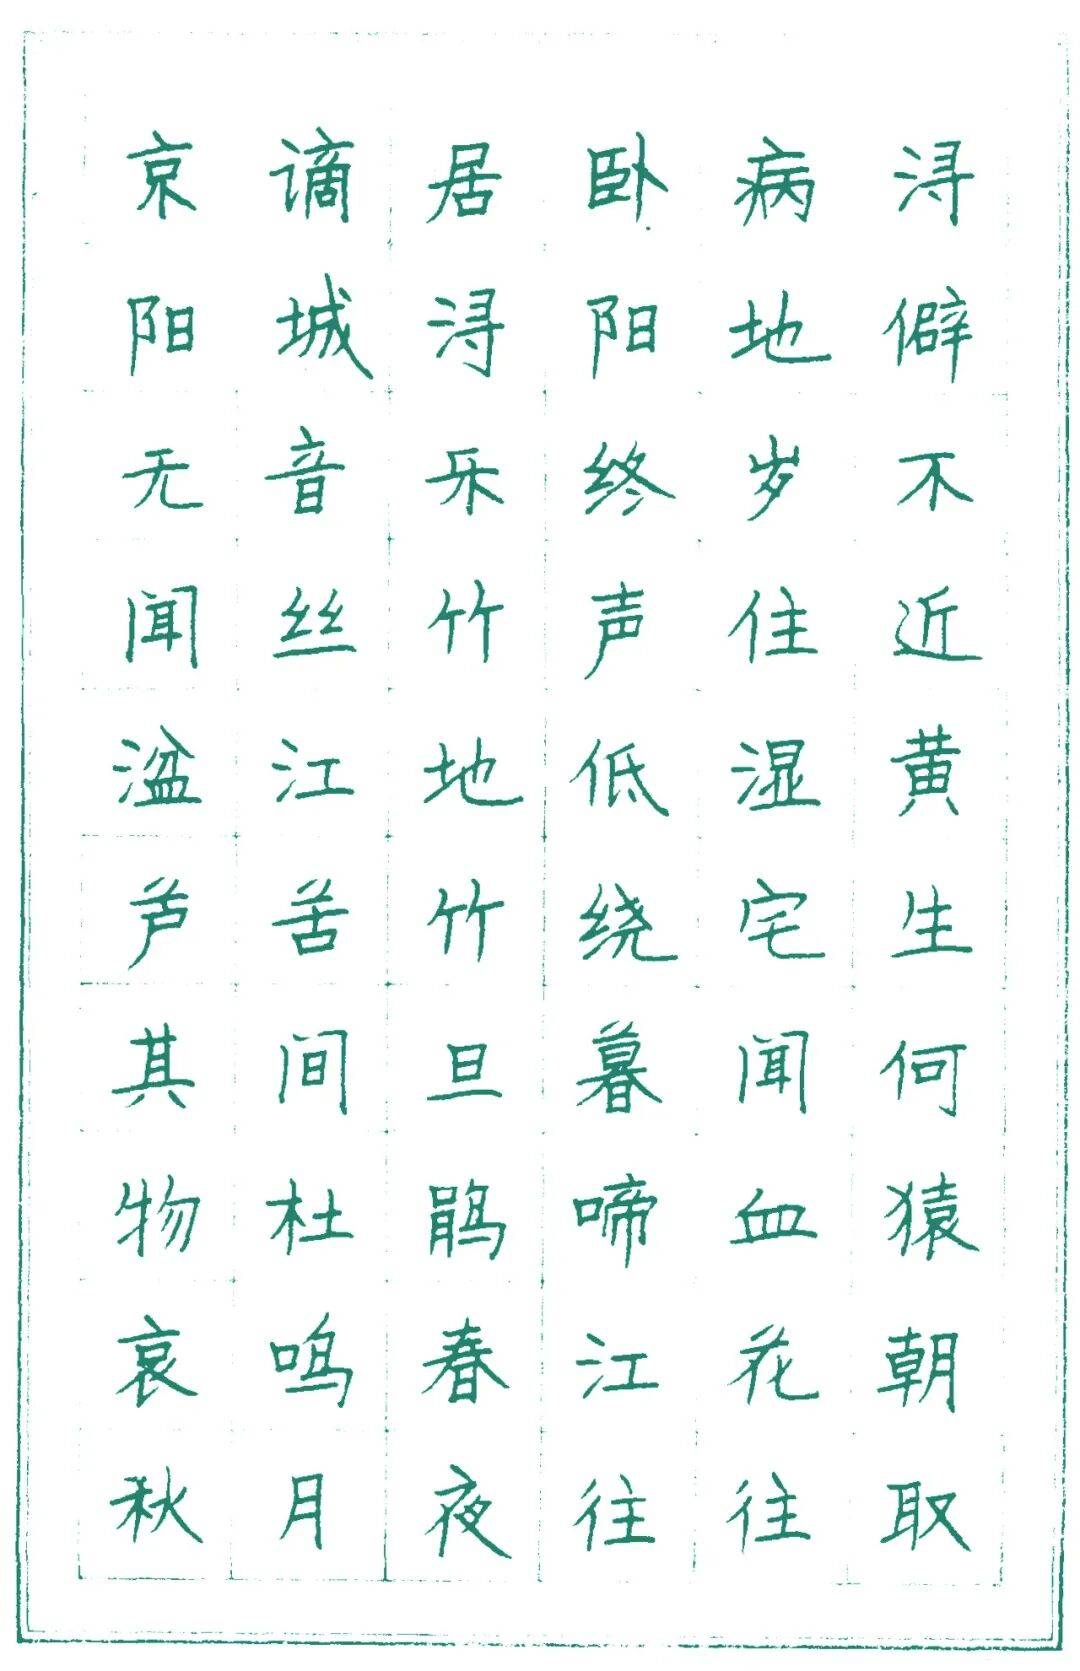 京谪居卧病浔
阳城浔阳地僻
无音乐终岁不
闻丝竹声住近
湓江地低湿黄
芦苦竹绕宅生
其间旦暮闻何
物杜鹃啼血猿
哀鸣春江花朝
秋月夜往往取